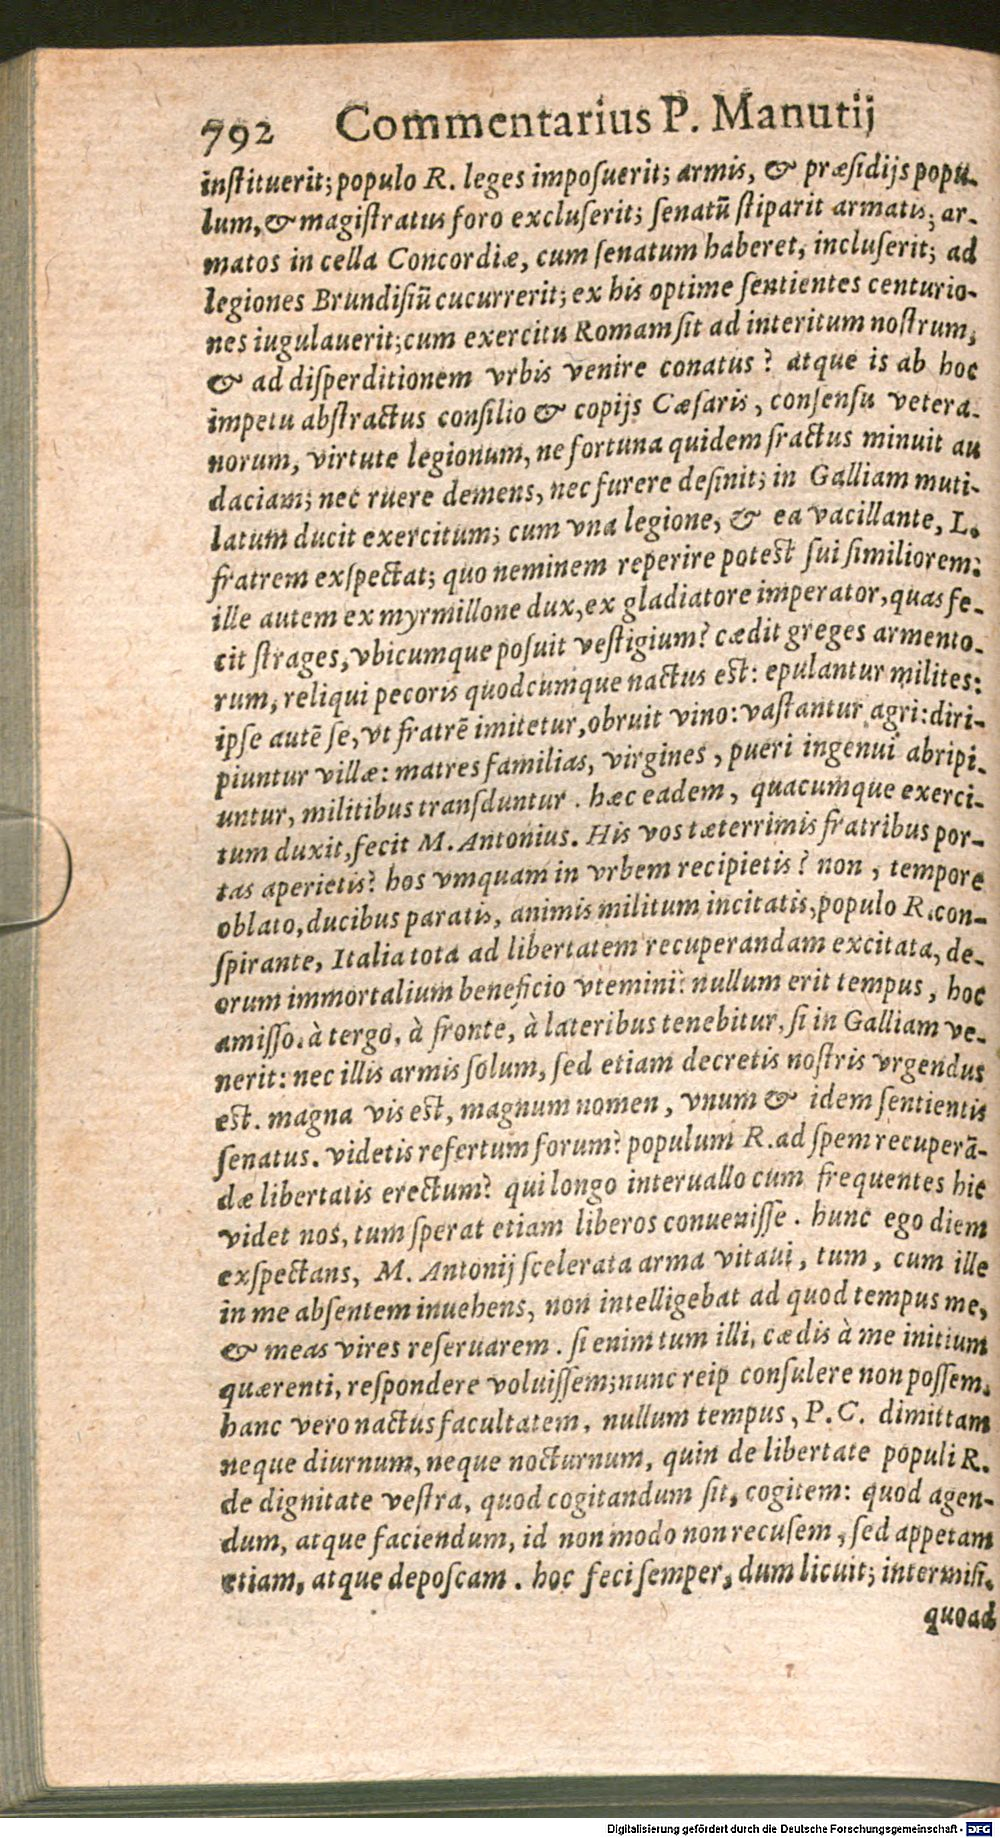 792 Commentarius P. Manutij
instituerit; populo R. leges imposuerit; armis, & præsidijs popu-
lum, & magistratus foro excluserit; senatū stiparit armatis; ar-
matos in cella Concordiæ, cum senatum haberet, incluserit; ad
legiones Brundisiū cucurrerit; ex his optime sentientes centurio-
nes iugulauerit; cum exercitu Romam sit ad interitum nostrum,
& ad disperditionem vrbis venire conatus? atque is ab hoc
impetu abstractus consilio & copijs Cæsaris, consensu vetera-
norum, virtute legionum, ne fortuna quidem fractus minuit au
daciam; nec ruere demens, nec furere desinit; in Galliam muti-
latum ducit exercitum; cum vna legione, & ea vacillante, L.
fratrem exspectat; quo neminem reperire potest sui similiorem:
ille autem ex myrmillone dux, ex gladiatore imperator, quas fe-
cit strages, vbicumque posuit vestigium? cædit greges armento-
rum, reliqui pecoris quodcumque nactus est: epulantur milites:
ipse autē se, vt fratrē imitetur, obruit vino: vastantur agri: diri-
piuntur villæ: matresfamilias, virgines, pueri ingenui abripi-
untur, militibus transduntur. hæc eadem, quacumque exerci-
tum duxit, fecit M. Antonius. His vos tæterrimis fratribus por-
tas aperietis? hos vmquam in vrbem recipietis? non, tempore
oblato, ducibus paratis, animis militum incitatis, populo R. con-
spirante, Italia tota ad libertatem recuperandam excitata, de-
orum immortalium beneficio vtemini? nullum erit tempus, hoc
amisso. à tergo, à fronte, à lateribus tenebitur, si in Galliam ve-
nerit: nec illis armis solum, sed etiam decretis nostris vrgendus
est. magna vis est, magnum nomen, vnum & idem sentientis
senatus. videtis refertum forum? populum R. ad spem recuperā-
dæ libertatis erectum? qui longo interuallo cum frequentes hic
videt nos, tum sperat etiam liberos conuenisse. hunc ego diem
exspectans, M. Antonij scelerata arma vitaui, tum, cum ille
in me absentem inuehens, non intelligebat ad quod tempus me,
& meas vires reseruarem. si enim tum illi, cædis à me initium
quærenti, respondere voluissem; nunc reip consulere non possem.
hanc vero nactus facultatem, nullum tempus, P. C. dimittam
neque diurnum, neque nocturnum, quin de libertate populi R.
de dignitate vestra, quod cogitandum sit, cogitem: quod agen-
dum, atque faciendum, id non modo non recusem, sed appetam
etiam, atque deposcam. hoc feci semper, dum licuit; intermisi,
quoad
Digitalisierung gefördert durch die Deutsche Forschungsgemeinschaft - DFG